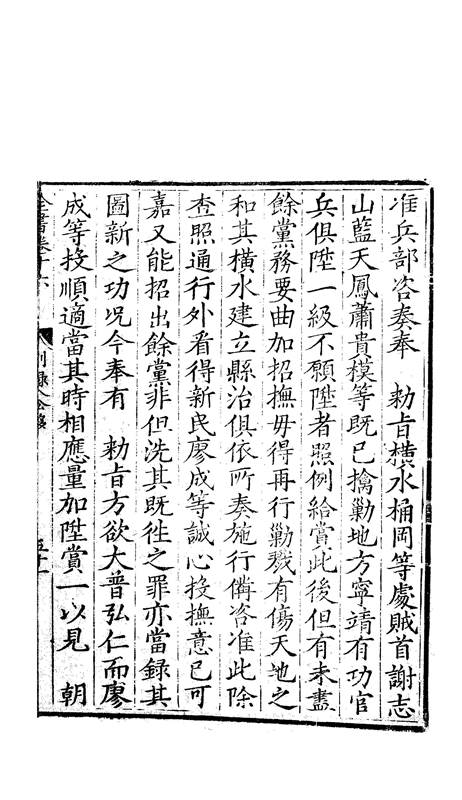 准兵部咨奏奉　勑旨橫水桶岡等處賊首謝志
山藍天鳳蕭貴模等既已擒勦地方寧靖有功官
兵俱陞一級不願陞者照例給賞此後但有未盡
餘黨務要曲加招撫毋得再行勦戮有傷天地之
和其橫水建立縣治俱依所奏施行備咨准此除
查照通行外看得新民廖成等誠心投撫意已可
嘉又能招出餘黨非但洗其既徃之罪亦當録其
圖新之功况今奉有　勑旨方欲大普弘仁而廖
成等投順適當其時相應量加陞賞一以見　朝
全書卷十六　別録八　公移　五十一